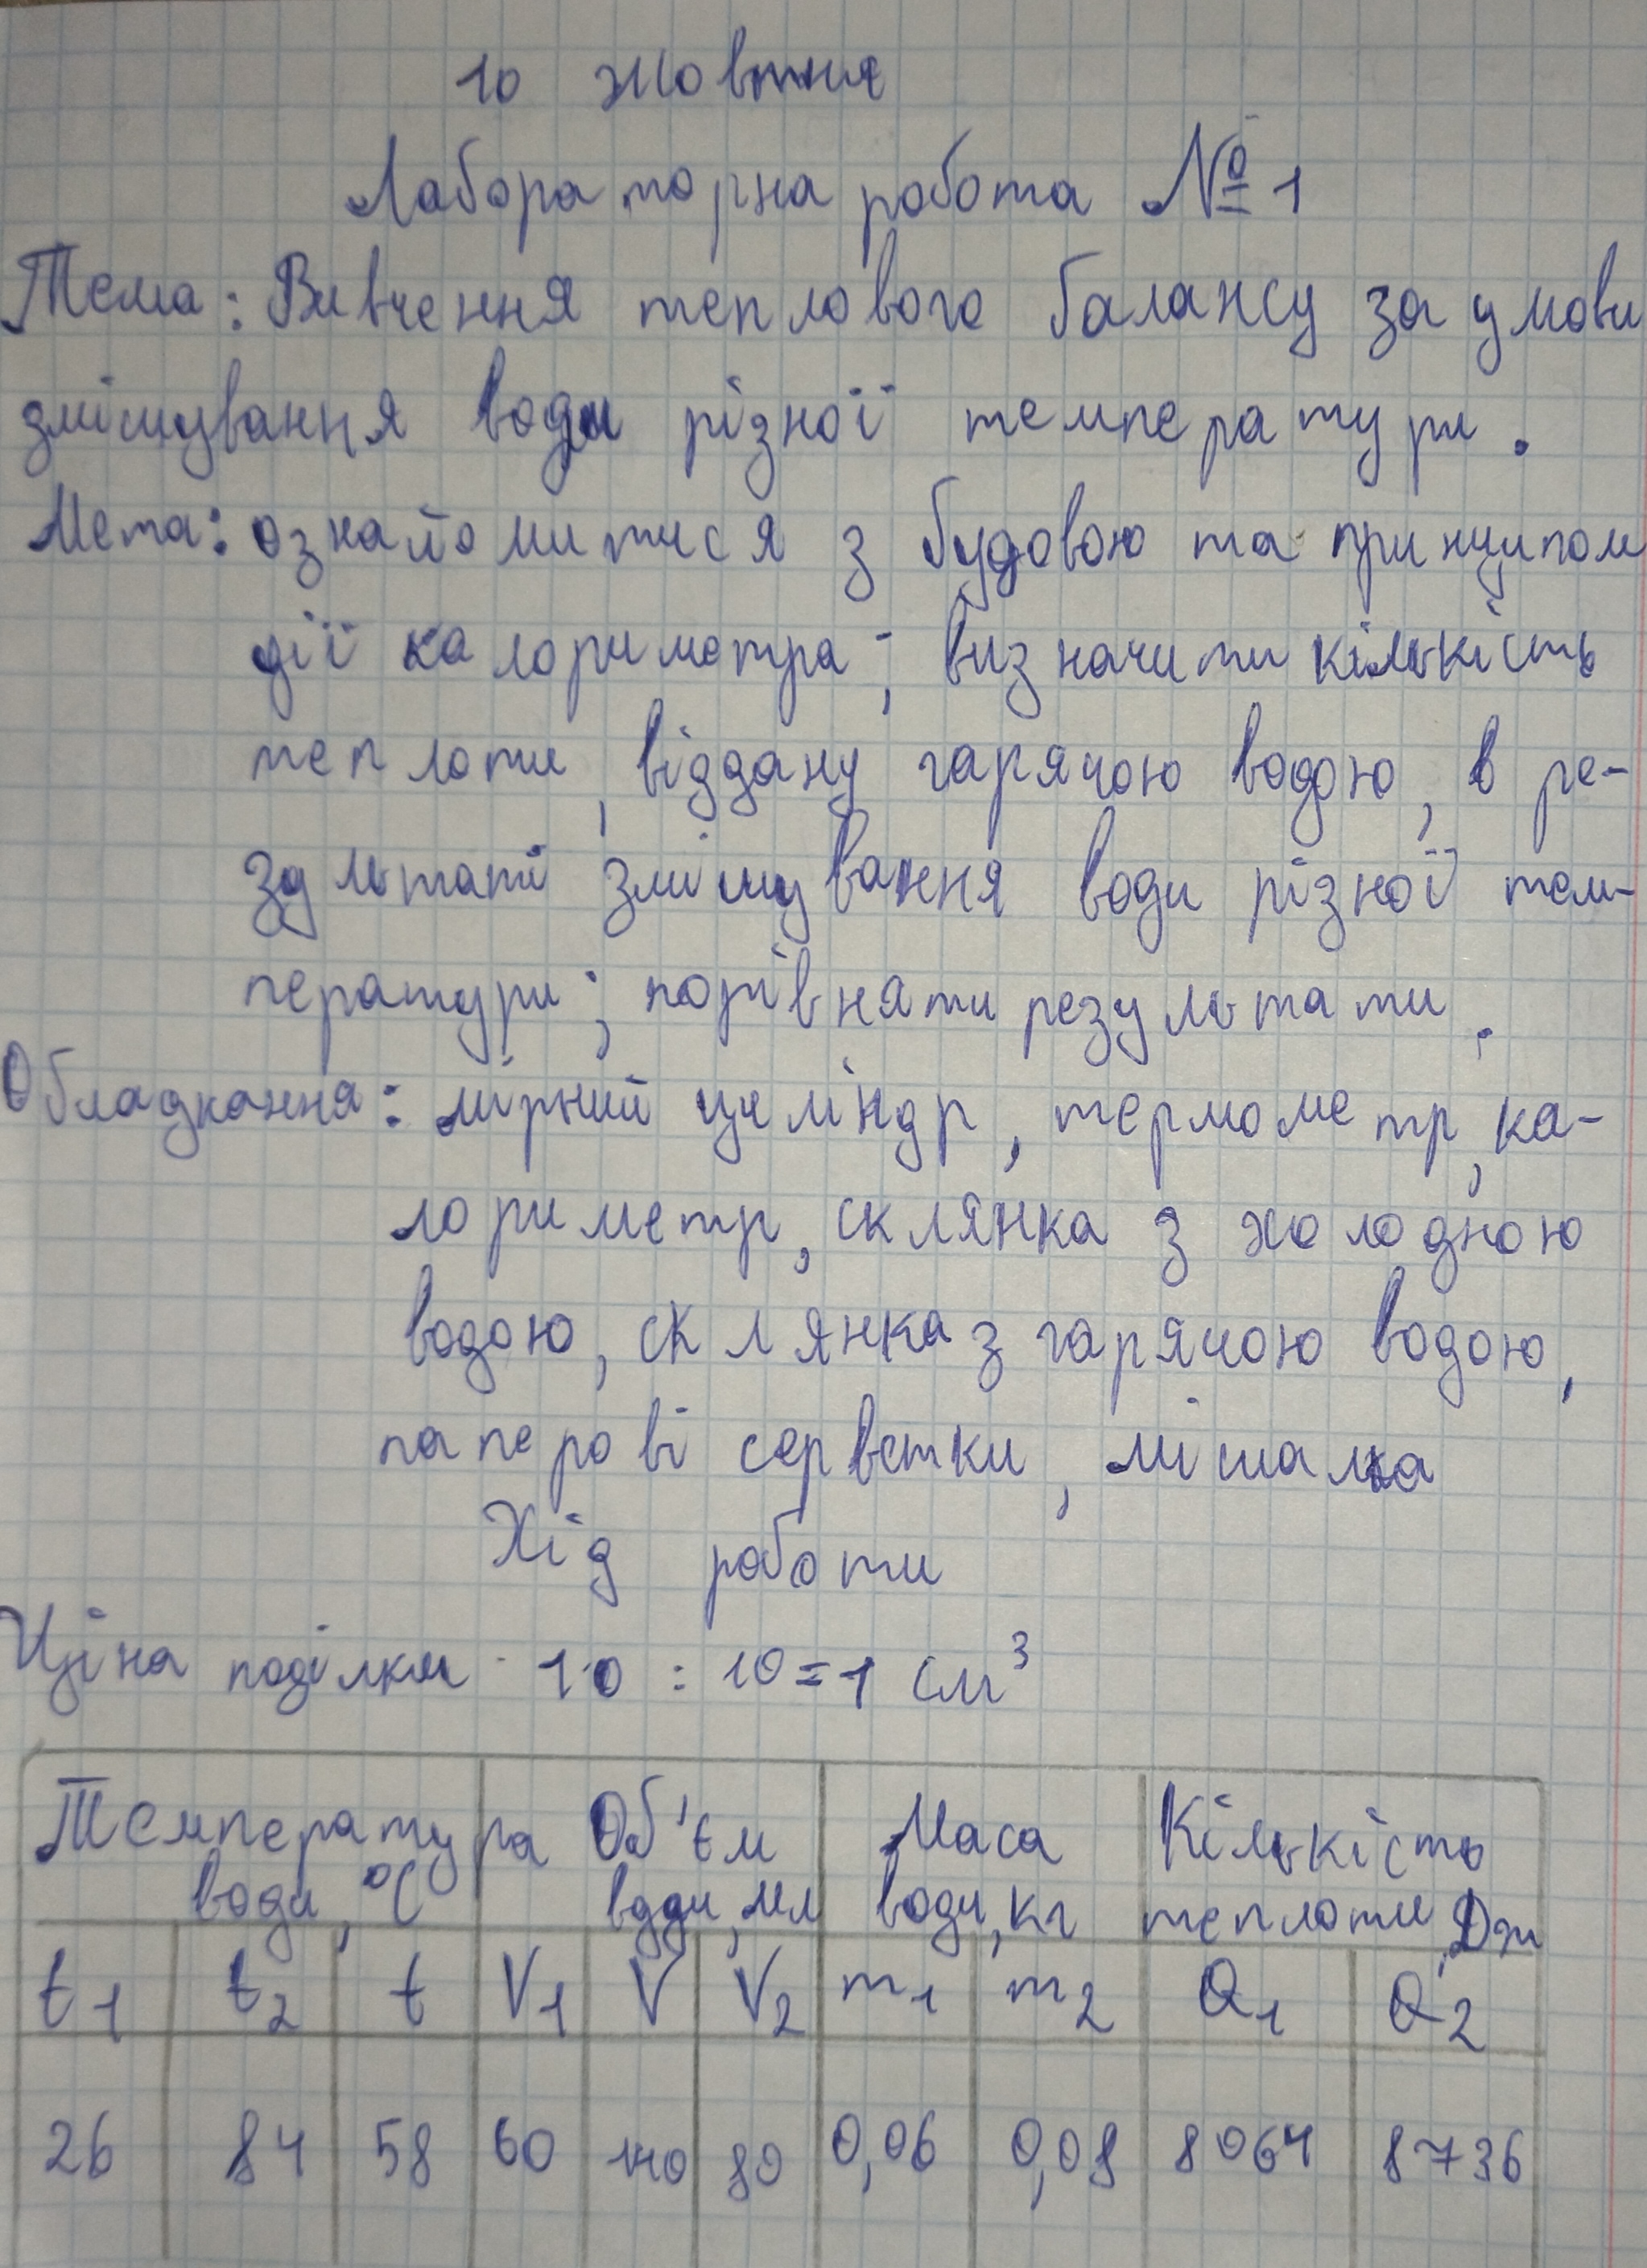 10 жовтня
Лабораторна робота № 1
Тема: Вивчення теплового балансу за умови
змішування води різної температури.
Мета: ознайомитися з будовою та принципом
дії калориметра; визначити кількість
теплоти, віддану гарячою водою, в ре-
зультаті змішування води різної тем-
ператури; порівняти результати.
Обладнання: мірний циліндр, термометр, ка-
лориметр, склянка з холодною
водою, склянка з гарячою водою,
паперові серветки, мішалка
Хід роботи
Ціна поділки - 10 : 10 = 1 см³
Температура Об'єм Маса Кількість
води, °C води, мл води, кг теплоти, Дж
t₁ t₂ t V₁ V V₂ m₁ m₂ Q₁ Q₂
26 84 58 60 140 80 0,06 0,08 8064 8736